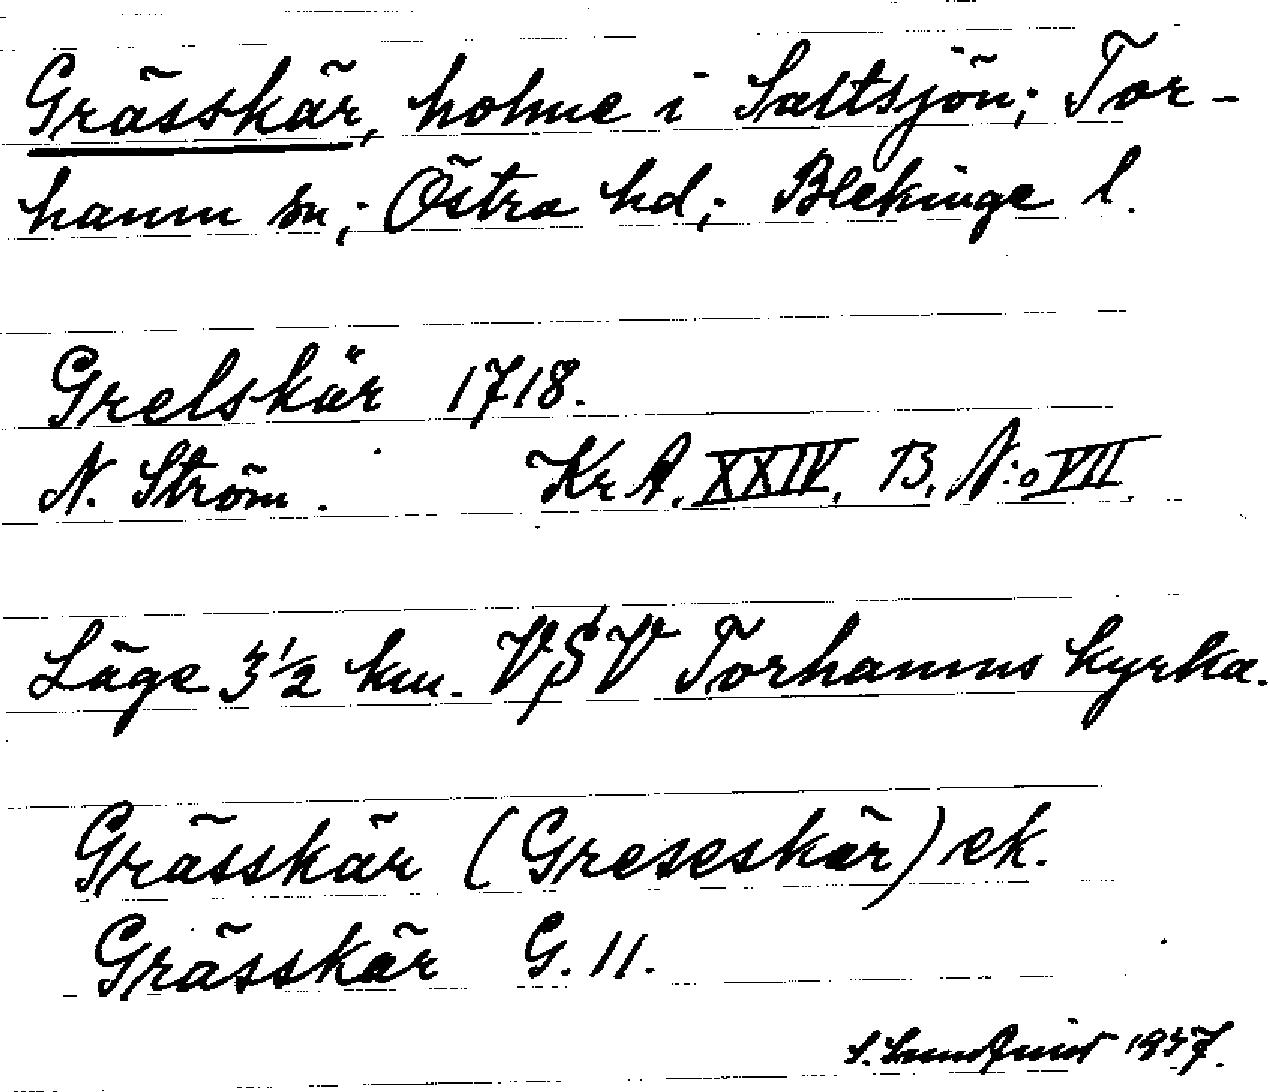 Grässkär, holme i Saltsjön; Tor-
hamn sn; Östra hd; Blekinge l.
Grelskär 1718.
N. Ström. Kr A. XXIV, B. N:o VII.
Läge 3 1/2 km. VSV Torhamns kyrka.
Grässkär (Greseskär) ek.
Grässkär G. 11.
1937.